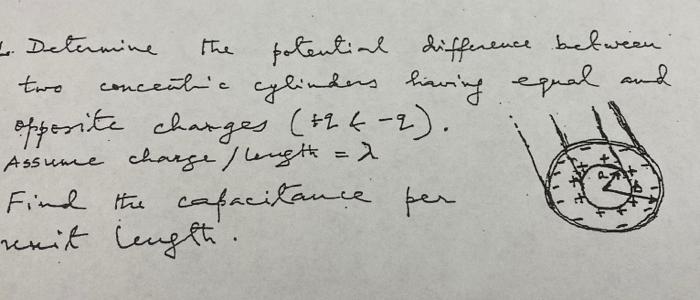 1. Determine the potential difference between
two concentric cylinders having equal and
opposite charges (+q & -q).
Assume charge/length = λ
Find the capacitance per
unit length.
a
b